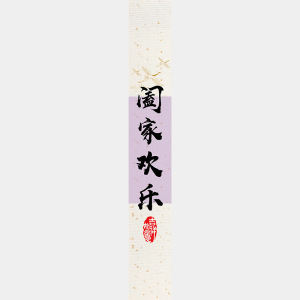 阖家欢乐